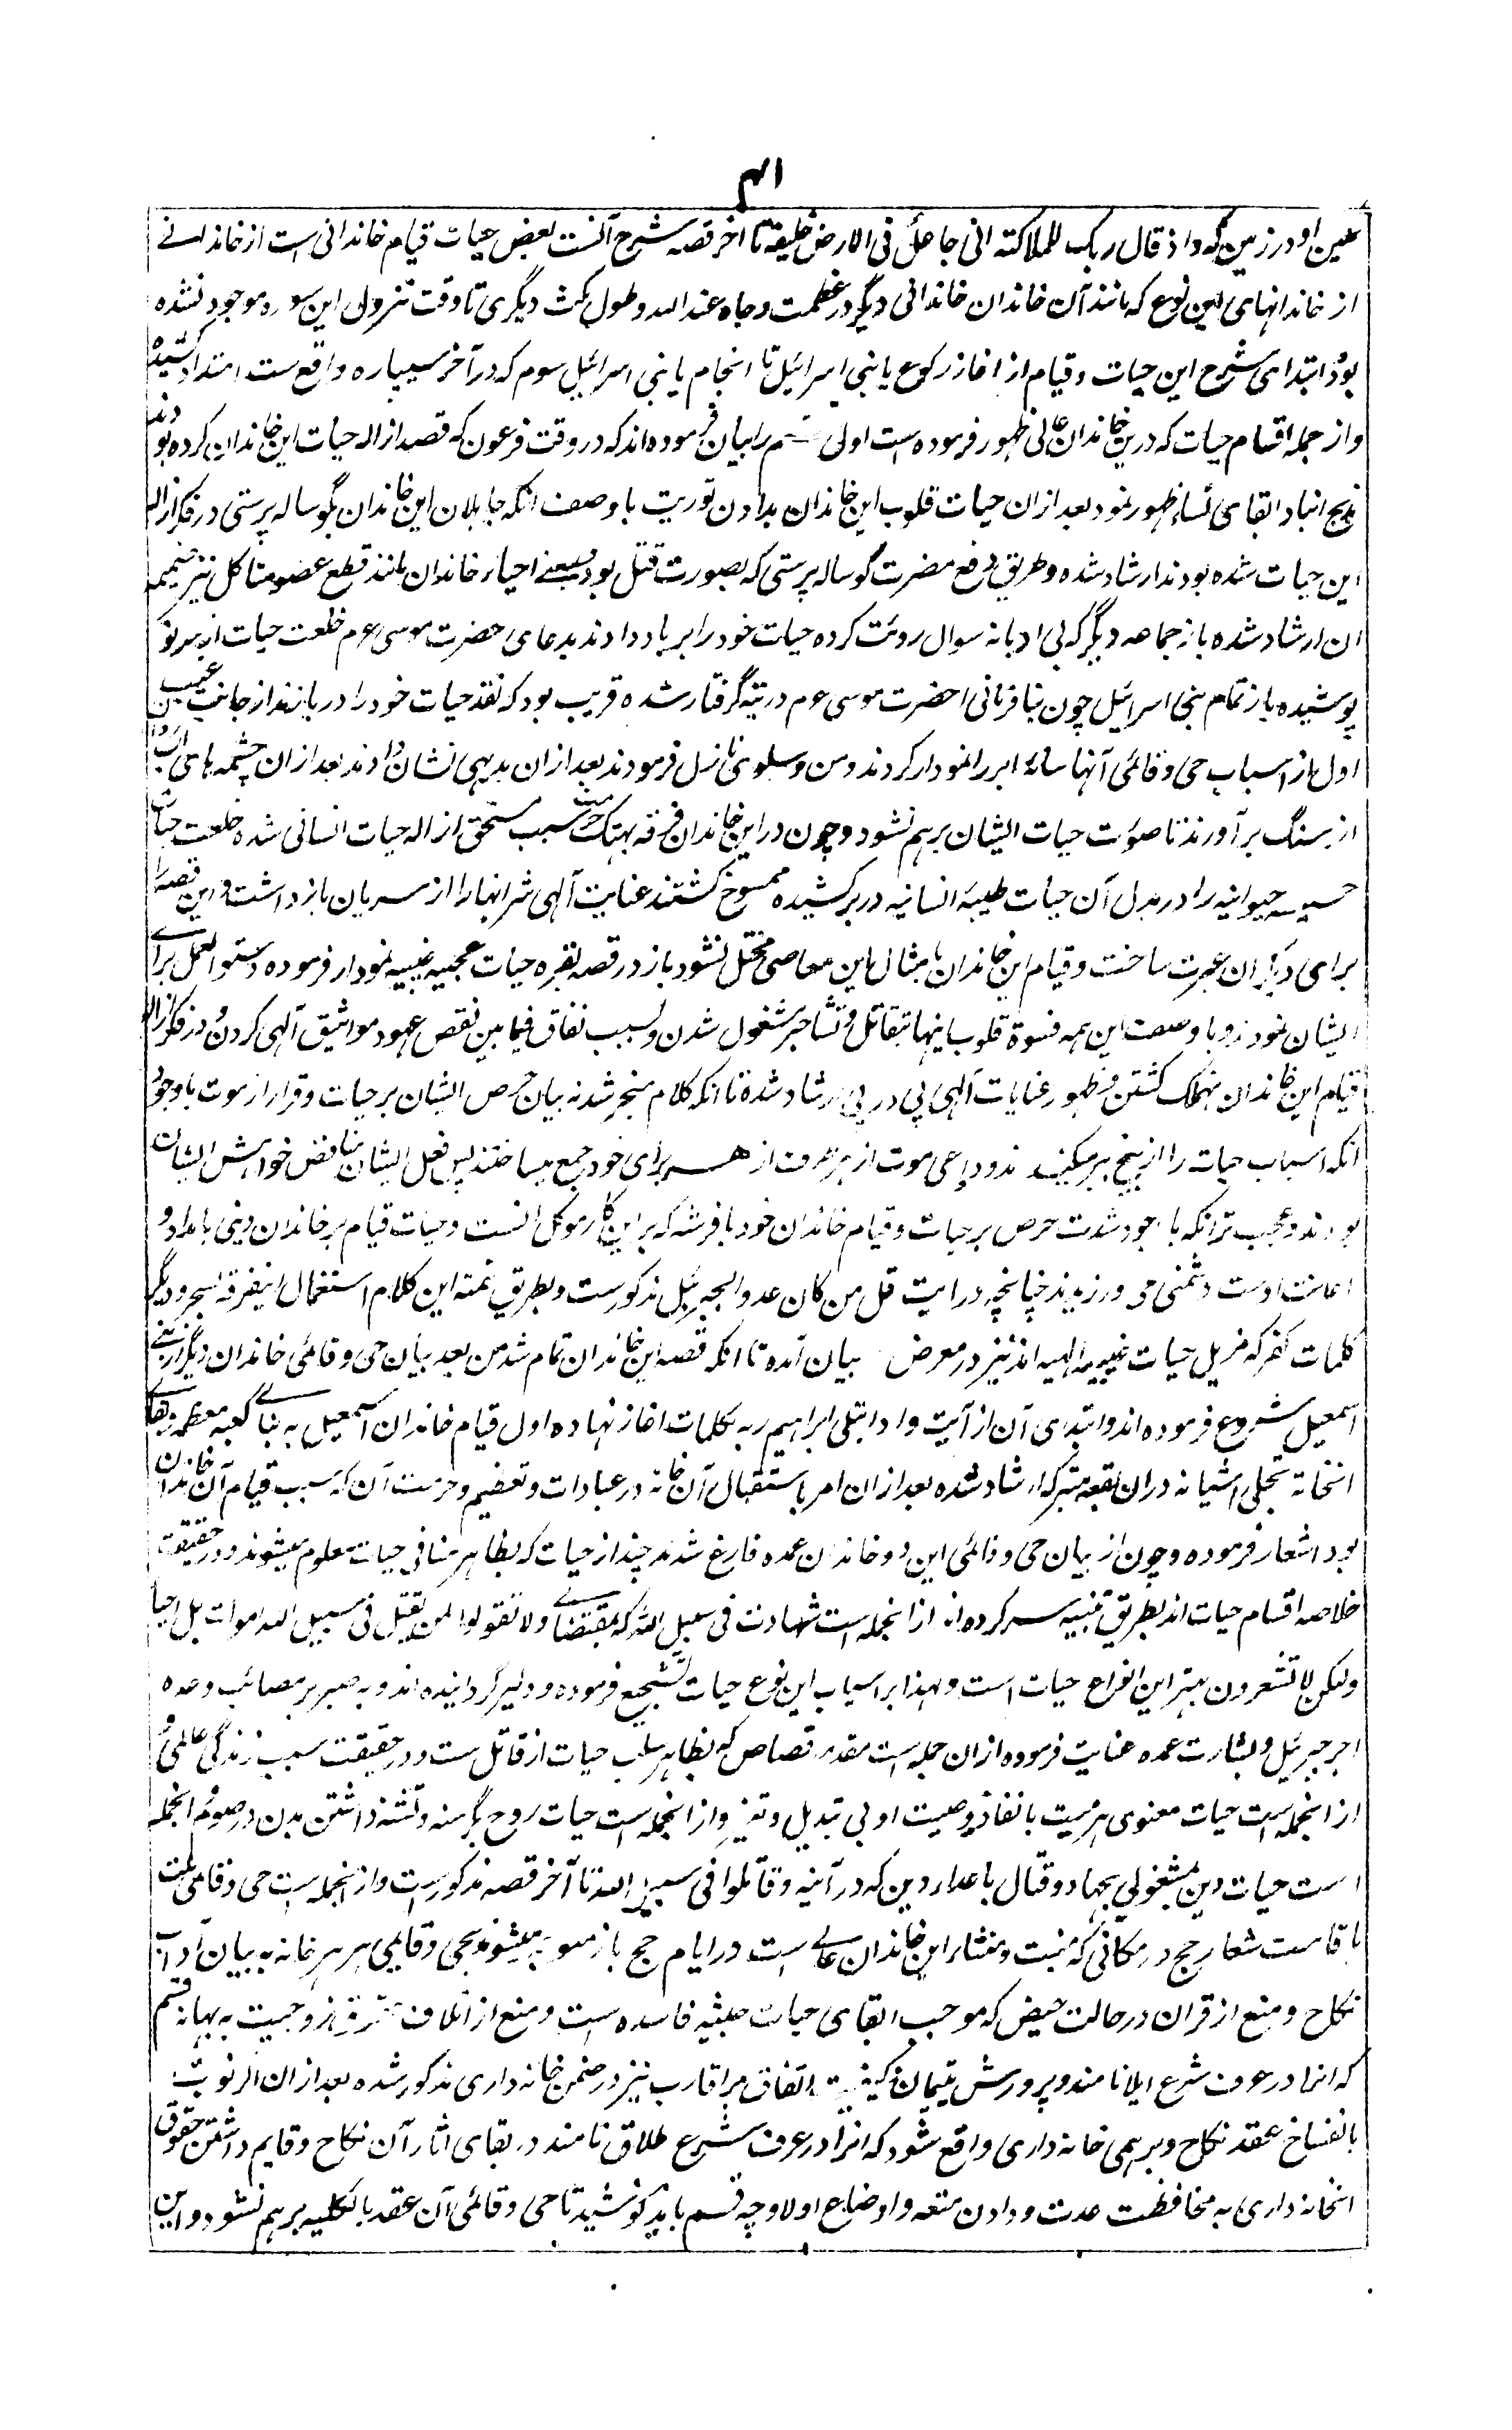 عین او در زمین که واذ قال ربک للملائکة انی جاعل فی الارض خلیفة تا آخر قصه شرح آنست بعض حیات قیام خاندانی است از خاندانے
از خاندانهای این نوع که مانند آن خاندان خاندانی دیگر در عظمت وجاه عند الله وطول مکث دیگری تا وقت نزول این سوره موجود نشده
بود ابتدای شرح این حیات وقیام از آغاز رکوع یا بنی اسرائیل تا انجام یا بنی اسرائیل سوم که در آخر سیپاره واقع ست امتداد کشیده
واز جمله اقسام حیات که درین خاندان عالی ظهور فرموده است اولی را بیان فرموده اند که در وقت فرعون که قصد ازاله حیات این خاندان کرده بود
بذبح ابناء وابقای نساء ظهور نمود بعد ازان حیات قلوب این خاندان بدادن توریت با وصف آنکه جاهلان این خاندان بگوساله پرستی در فکر ازاله
این حیات شده بودند ارشاد شده وطریق دفع مضرت گوساله پرستی که بصورت قتل بود وبمعنے احیاء خاندان مانند قطع عضو متاکل نیز ضمیمه
آن ارشاد شده باز جماعه دیگر که بی ادبانه سوال رویت کرده حیات خود را برباد دادند بدعای حضرت موسی عم خلعت حیات از سر نو
پوشیده باز تمام بنی اسرائیل چون بنافرمانی حضرت موسی عم در تیه گرفتار شده قریب بود که نقد حیات خود را دربازند از جانب غیب
اول از اسباب حی وقائمی آنها سایه ابر را نمودار کردند ومن وسلوی نازل فرمودند بعد ازان بدیهی نشان دادند بعد ازان چشمه های آب
از سنگ برآوردند تا صورت حیات ایشان برهم نشود وچون در این خاندان فرقه بهتک حرمت سبت مستحق ازاله حیات انسانی شده خلعت حیات
خسیسه حیوانیه را در بدل آن حیات طیبه انسانیه در بر کشیده ممسوخ گشتند عنایت آلهی شر آنها را از سریان بازداشت واین قصه را
برای دیگران عبرت ساخت وقیام این خاندان بامثال این معاصی مختل نشود باز در قصه بقره حیات عجیبه غیبیه نمودار فرموده دستور العمل براے
ایشان نمودند وبا وصف این همه قسوة قلوب اینها بتقاتل وتشاجر مشغول شدن وبسبب نفاق فیما بین نقض عهود مواثیق آلهی کردن ودر فکر ازاله
قیام این خاندان منهمک گشتن وظهور عنایات آلهی پی در پی ارشاد شده تا آنکه کلام منجر شد به بیان حرص ایشان بر حیات وفرار از موت باوجود
آنکه اسباب حیات را از بیخ برمیکنند ودواعی موت از هر طرف از هر برای خود جمع میساختند پس فعل ایشان مناقض خواهش ایشان
بودند وعجیب تر آنکه باوجود شدت حرص بر حیات وقیام خاندان خود با فرشته که براین کار موکل است وحیات وقیام هر خاندان دینی بامداد و
اعانت اوست دشمنی می ورزیدند چنانچه در آیت قل من کان عدوا لجبرئیل مذکورست وبطریق تتمه این کلام استعمال این فرقه سحر ودیگر
کلمات کفر که مزیل حیات غیبیه الهیه اند نیز در معرض بیان آمده تا آنکه قصه این خاندان تمام شد من بعد بیان حی وقائمی خاندان دیگر از بنے
اسمعیل شروع فرموده اند وابتدای آن از آیت واذ ابتلی ابراهیم ربه بکلمات آغاز نهاده اول قیام خاندان اسمعیل به بناے کعبه معظمه
آنخانه تجلی آشیانه دران بقعه متبرکه ارشاد شده بعد ازان امر باستقبال آن خانه در عبادات وتعظیم وحرمت آن که سبب قیام آن خاندان
بود اشعار فرموده وچون از بیان حی وقائمی این دو خاندان عمده فارغ شدند چند از حیات که بظاهر منافی حیات معلوم میشوند ودر حقیقت
خلاصه اقسام حیات اند بطریق تنبیه سر کرده اند ازانجمله است شهادت فی سبیل الله که بمقتضاے ولا تقولوا لمن یقتل فی سبیل الله اموات بل احیاء
ولکن لا تشعرون بهترین انواع حیات است ولهذا بر اسباب این نوع حیات تشجیع فرموده ودلیر گردانیده اند وبه صبر بر مصائب وعده
اجر جزیل وبشارت عمده عنایت فرموده ازان جمله است مقدمه قصاص که بظاهر سلب حیات از قاتل ست ودر حقیقت سبب زندگی عالمی و
ازانجمله است حیات معنوی هر میت بانفاذ وصیت او بی تبدیل وتغیر وازانجمله است حیات روح بگرسنه وتشنه داشتن بدن در صوم ازانجمله
است حیات دین بمشغولی بجهاد وقتال با اعداء دین که در آیه وقاتلوا فی سبیل الله تا آخر قصه مذکورست وازانجمله ست حی وقائمی ملت
باقامت شعار حج در مکانی که منبت ومنشاء این خاندان عالے است در ایام حج باز میشوند بحی وقایمی هر هر خانه به بیان آداب
نکاح ومنع از قران در حالت حیض که موجب ابقای حیات خبیثه فاسده است ومنع از اتلاف حقوق زوجیت به بهانه قسم
که آنرا در عرف شرع ایلا نامند وپرورش یتیمان وکیفیت انفاق بر اقارب نیز در ضمن خانه داری مذکور شده بعد ازان اگر نوبت
بانفساخ عقد نکاح وبرهمی خانه داری واقع شود که آنرا در عرف شرع طلاق نامند در بقای آثار آن نکاح وقایم داشتن حقوق
آنخانه داری به محافظت عدت ودادن متعه وارضاع اولاد چه قسم باید کوشید تا حی وقائمی آن عقد بالکلیه برهم نشود واین